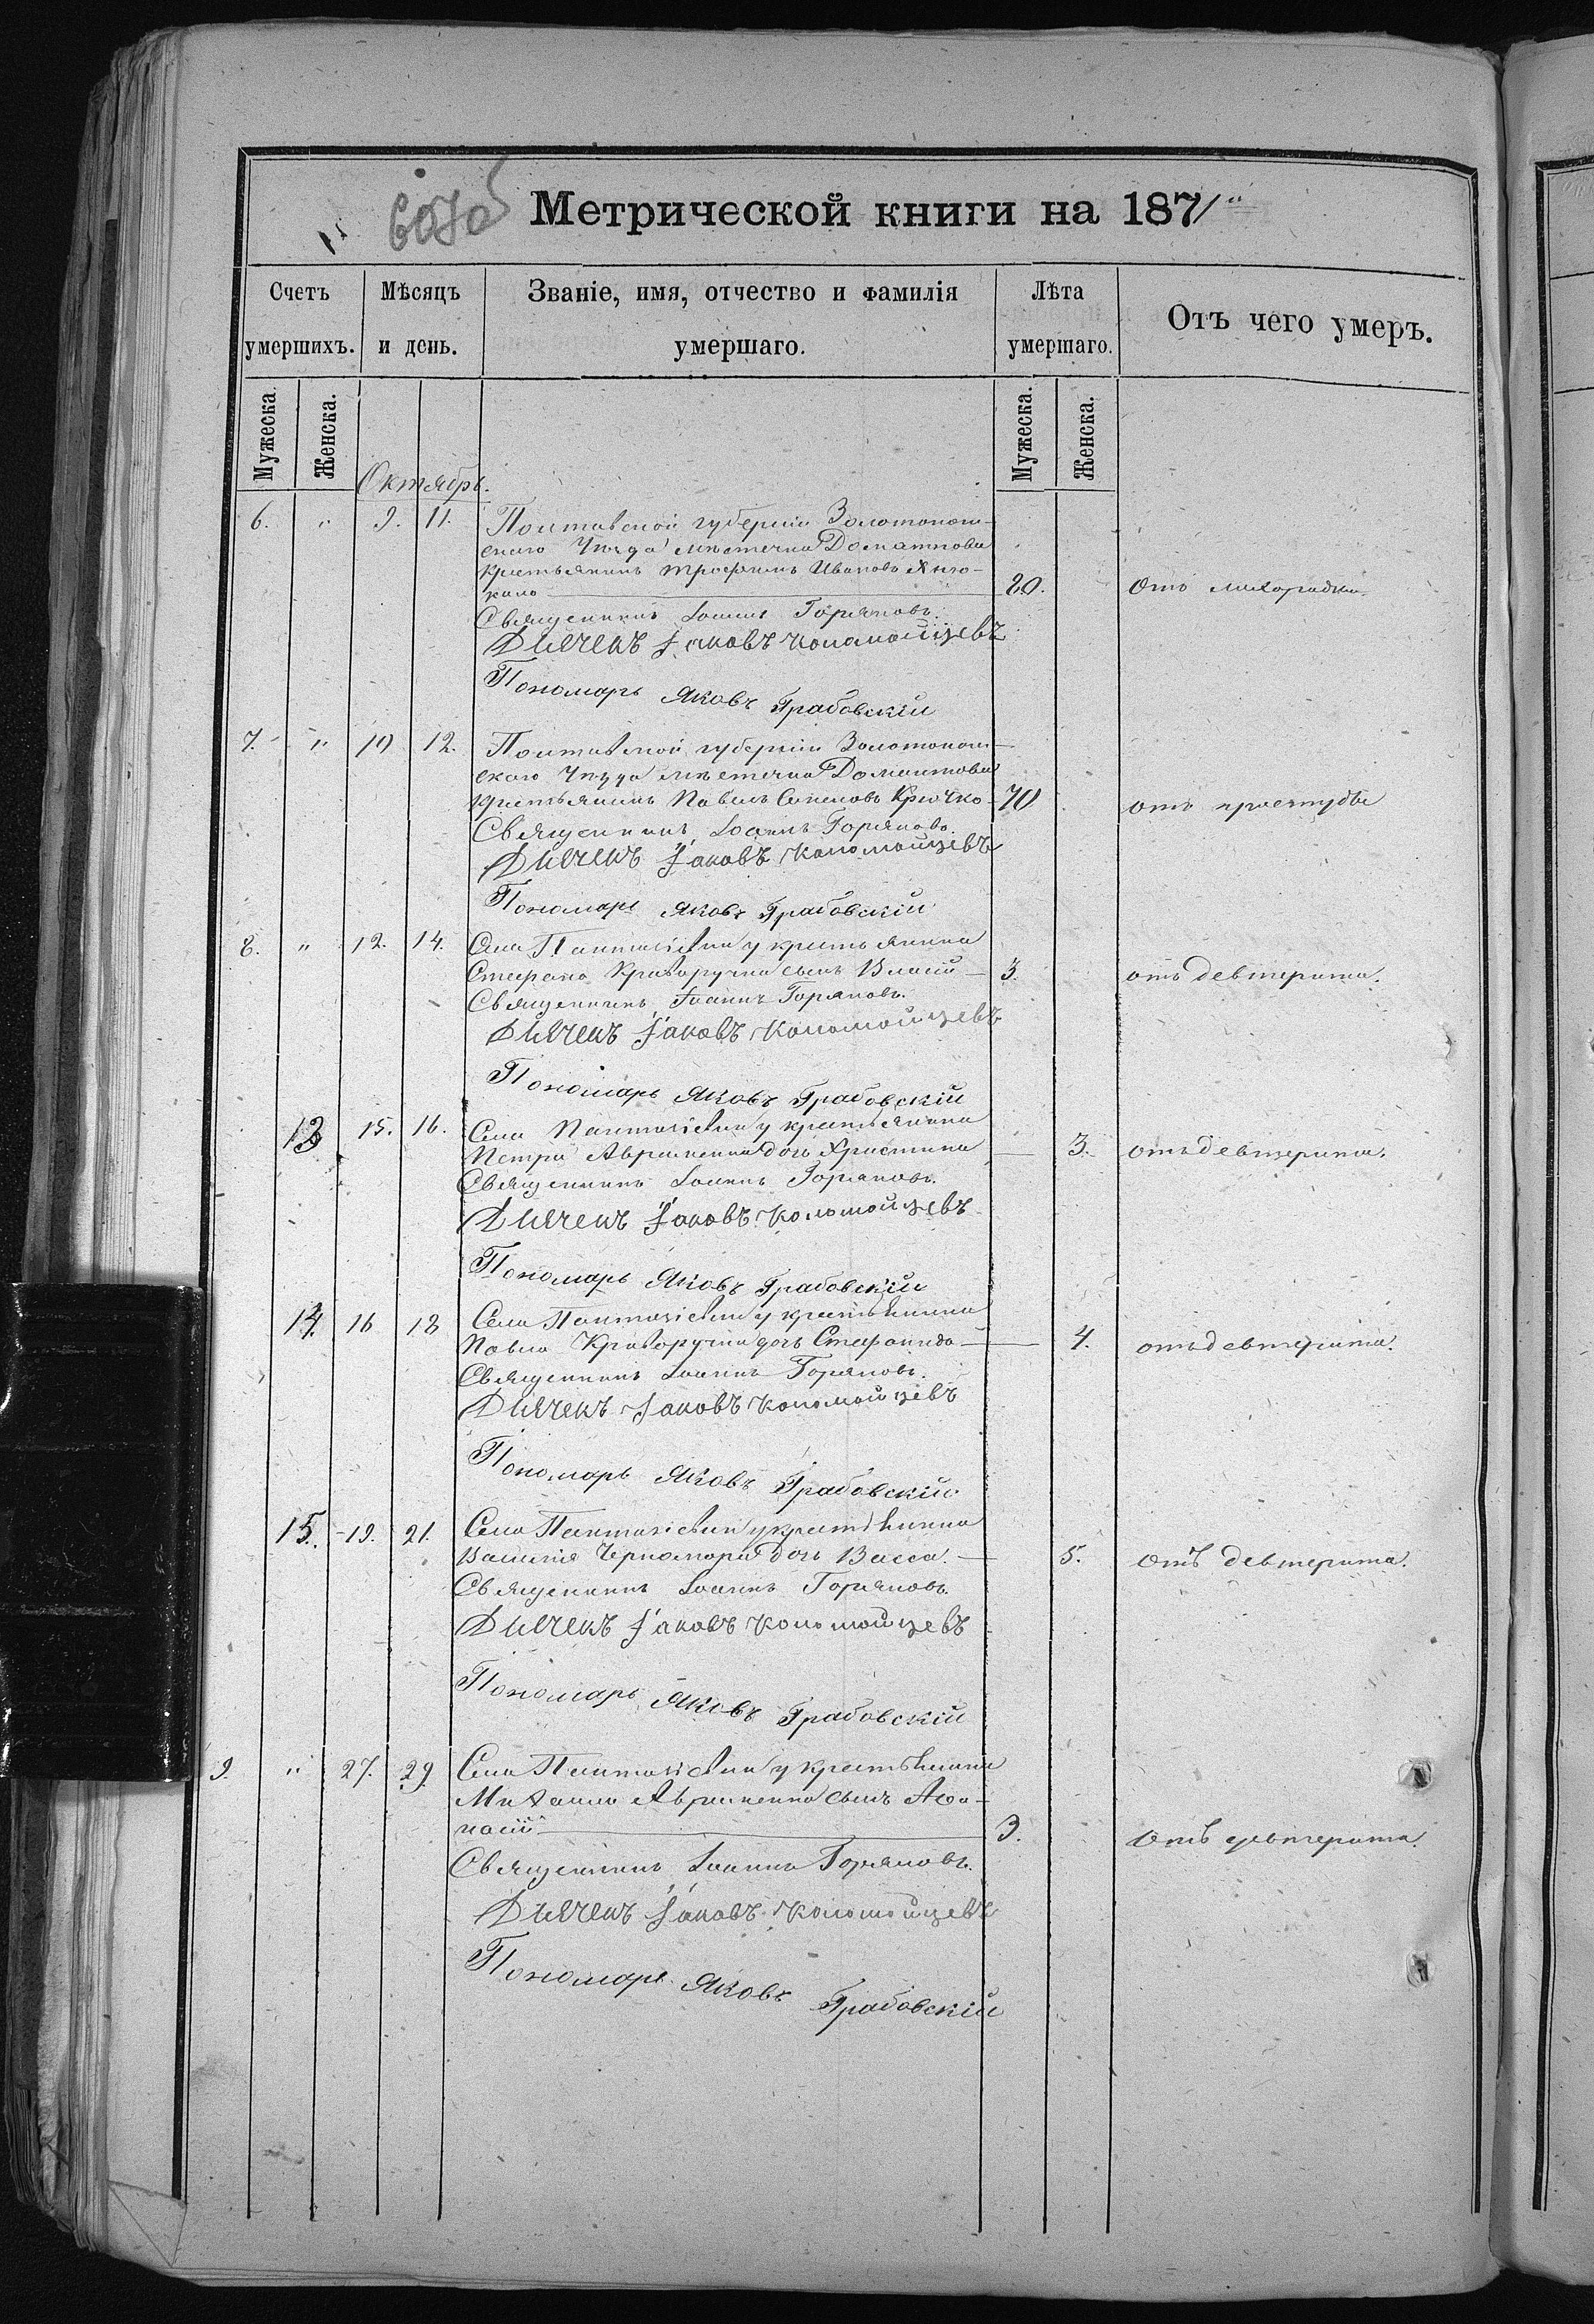 Метрической книги на 1871
Счетъ умершихъ.
Мѣсяцъ и день.
Званіе, имя, отчество и фамилія умершаго.
Лѣта умершаго.
Отъ чего умеръ.
Мужеска.
Женска.
Мужеска.
Женска.
Октябрь.
6. " 9. 11. Полтавской губерніи Золотонош-
скаго Уѣзда мѣстечка Домантова
крестьянинъ Трофимъ Ивановъ
20. Отъ лихорадки.
Священникъ Іоаннъ Горяновъ.
Дьячекъ Іаковъ Коломойцевъ
Пономарь Яковъ Грабовскій
7. " 10 12. Полтавской губерніи Золотонош-
скаго Уѣзда мѣстечка Домантова
крестьянинъ Павелъ Крючко 70 отъ простуды
Священникъ Іоаннъ Горяновъ.
Дьячекъ Іаковъ Коломойцевъ
Пономарь Яковъ Грабовскій
8. " 12. 14. Села у крестьянина
Стефана Криворучка сынъ Власій 3. отъ девтерита.
Священникъ Іоаннъ Горяновъ.
Дьячекъ Іаковъ Коломойцевъ
Пономарь Яковъ Грабовскій
13 15. 16. Села у крестьянина
Петра Авраменка дочь Христина 3. отъ девтерита.
Священникъ Іоаннъ Горяновъ.
Дьячекъ Іаковъ Коломойцевъ
Пономарь Яковъ Грабовскій
14. 16 18 Села у крестьянина
Павла Криворучки дочь Стефанида 4. отъ девтерита.
Священникъ Іоаннъ Горяновъ.
Дьячекъ Іаковъ Коломойцевъ
Пономарь Яковъ Грабовскій
15. 19. 21. Села у крестьянина
Василія Черномора дочь Васса. 5. отъ девтерита.
Священникъ Іоаннъ Горяновъ.
Дьячекъ Іаковъ Коломойцевъ
Пономарь Яковъ Грабовскій
9. " 27. 29. Села у крестьянина
Михаила Авраменка сынъ Аѳа-
насій 3. Отъ девтерита.
Священникъ Іоаннъ Горяновъ.
Дьячекъ Іаковъ Коломойцевъ
Пономарь Яковъ Грабовскій